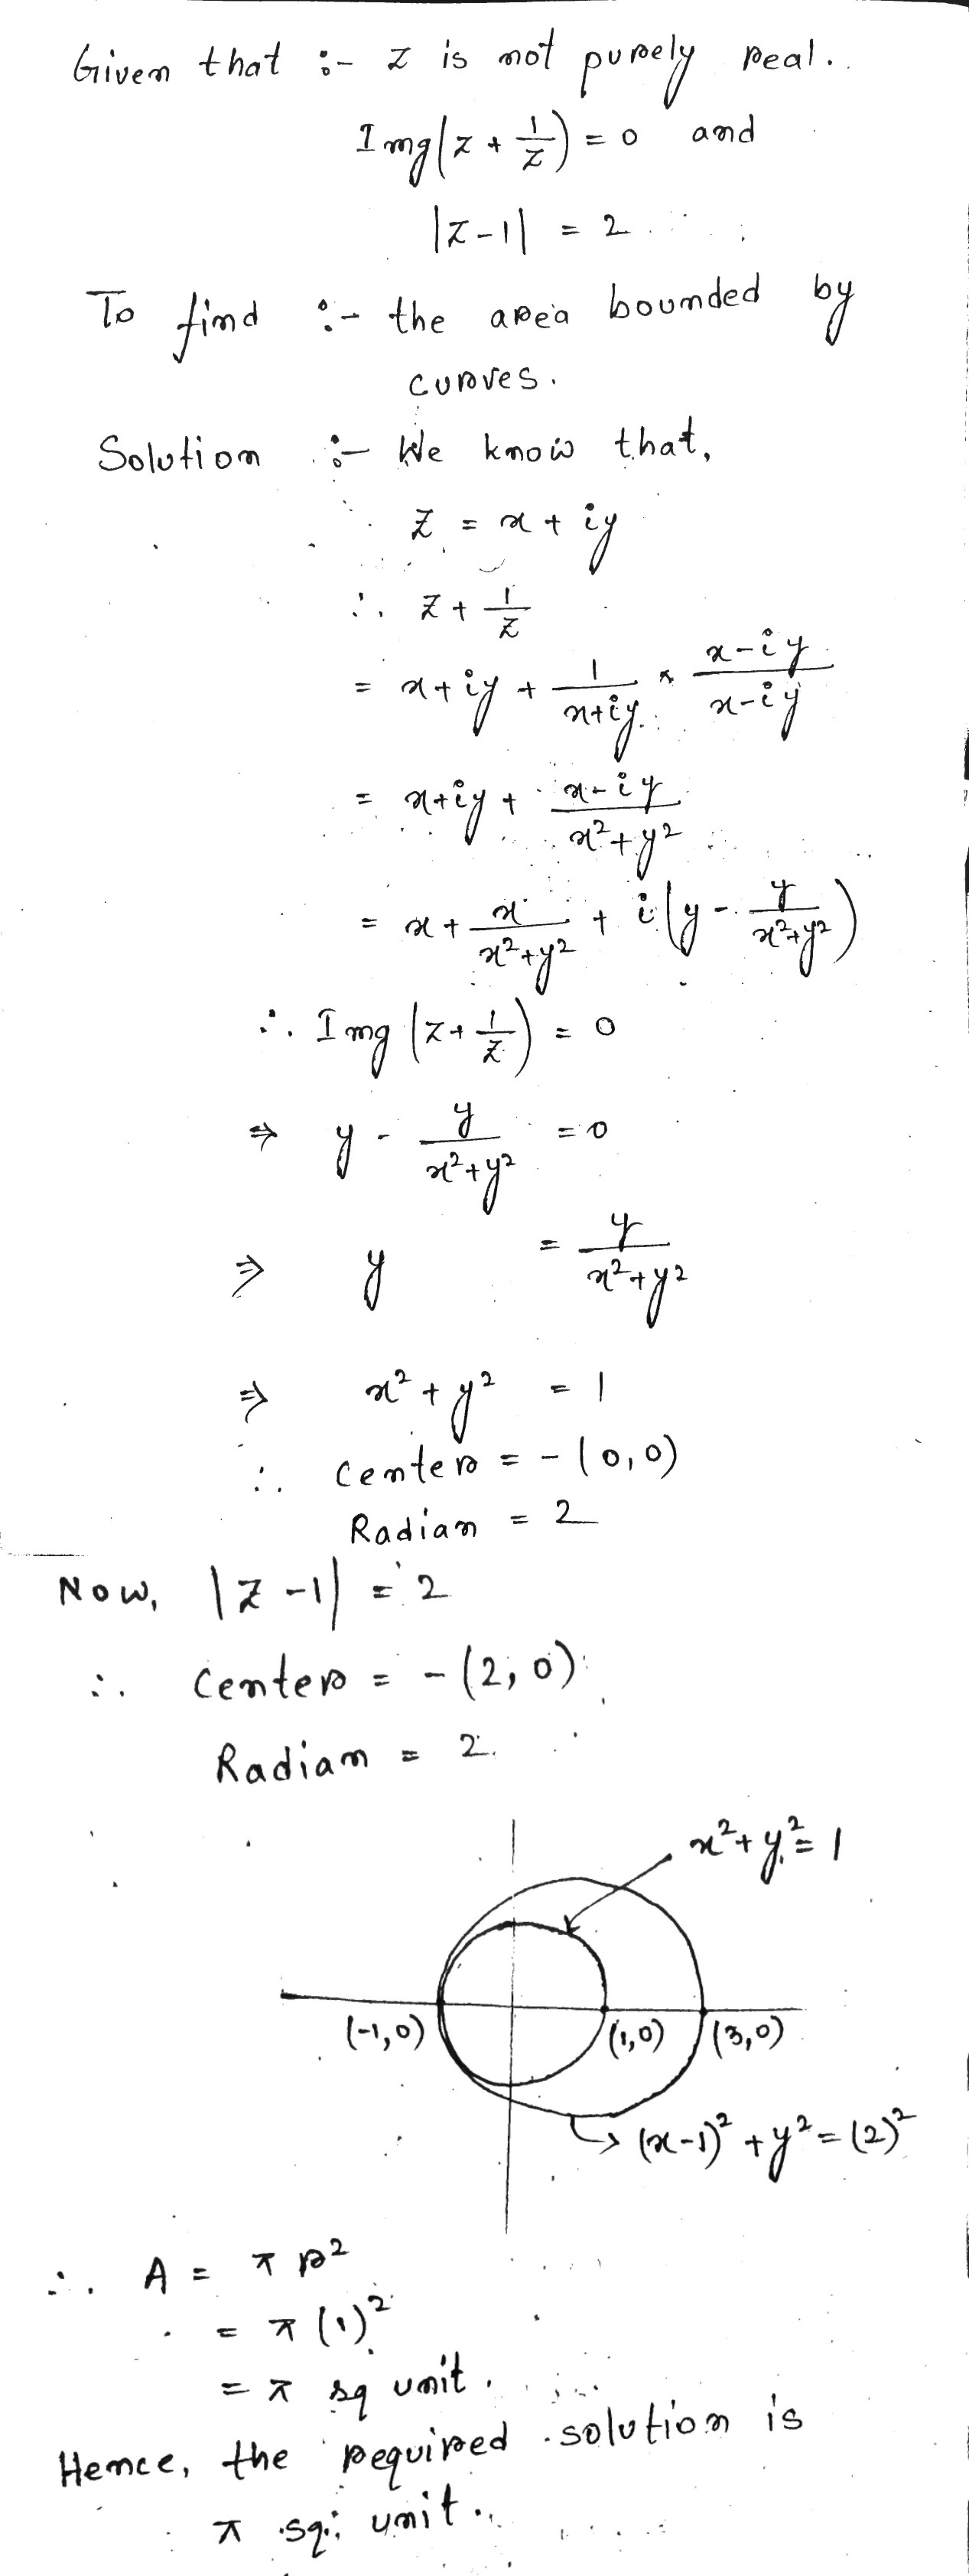 Given that :- z is not purely real.
Img(z + 1/z) = 0 and
|z-1| = 2
To find :- the area bounded by
curves.
Solution :- We know that,
z = x + iy
∴ z + 1/z
= x + iy + 1/(x+iy) × (x-iy)/(x-iy)
= x+iy + (x-iy)/(x²+y²)
= x + x/(x²+y²) + i(y - y/(x²+y²))
∴ Img (z + 1/z) = 0
⇒ y - y/(x²+y²) = 0
⇒ y = y/(x²+y²)
⇒ x² + y² = 1
∴ Center = - (0,0)
Radian = 2
Now, |z-1| = 2
∴ Center = - (2,0)
Radian = 2.
x²+y²=1
(-1,0) (1,0) (3,0)
(x-1)² + y² = (2)²
∴ A = π r²
= π (1)²
= π sq unit.
Hence, the required solution is
π sq. unit.